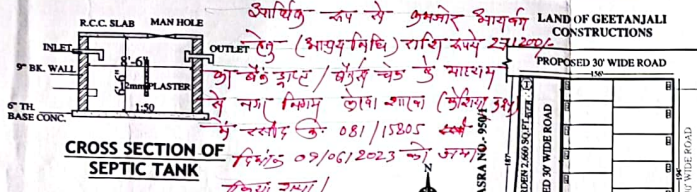 R.C.C. SLAB MAN HOLE
INLET
OUTLET
8'-6"
9" BK. WALL
6'6"
2mm PLASTER
6" TH.
BASE CONC.
1:50
CROSS SECTION OF
SEPTIC TANK
आर्थिक रूप से कमजोर आयवर्ग
हेतु (आश्रय निधि) राशि रूपये
का बैंक ड्राफ्ट / बैंकर्स चेक के माध्यम
से नगर निगम
में रसीद क्रि. 081/15805
दिनांक 09/06/2023 को जमा
किया गया/
LAND OF GEETANJALI
CONSTRUCTIONS
PROPOSED 30' WIDE ROAD
156'
ASRA NO.- 950/1
187'
DEN 2,660 SQ.FT.
ED 30' WIDE ROAD
194'
WIDE ROAD
N